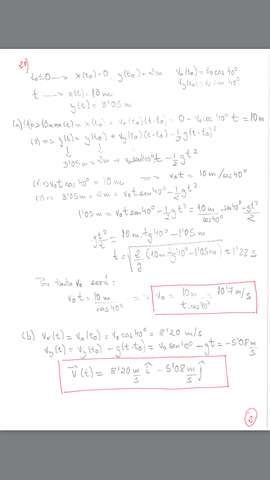 20)
t₀=0 ---> x(t₀)=0 y(t₀)=2m Vx(t₀)=V₀cos40º
Vy(t₀)=V₀ sen 40º
t ----> x(t)=10m
y(t)=3'05m
(a)(1)=>10m=x(t)=x(t₀)+Vx(t₀)(t-t₀)=0-V₀cos40º t=10m
(2)=> y(t)=y(t₀)+Vy(t₀)(t-t₀)-½g(t-t₀)²
3'05m=2m+V₀sen40ºt-½gt²
(1)=>V₀t cos40º=10m ==> V₀t=10m/cos40º
(2)=> 3'05m=2m+V₀t sen40º-½gt²
1'05m=V₀t sen40º-½gt²=10m/cos40º·sen40º-gt²/2
gt²/2=10m.tg40º-1'05m
t=√(2/g(10m tg40º-1'05m))=1'22s
Por tanto V₀ será:
V₀t=10m/cos40º ==> V₀=10m/t.cos40º=10'7m/s
(b) Vx(t)=Vx(t₀)=V₀cos40º=8'20 m/s
Vy(t)=Vy(t₀)-g(t-t₀)=V₀sen40º-gt=-5'08m/s
V⃗(t)=8'20m/s î-5'08m/s ĵ
2